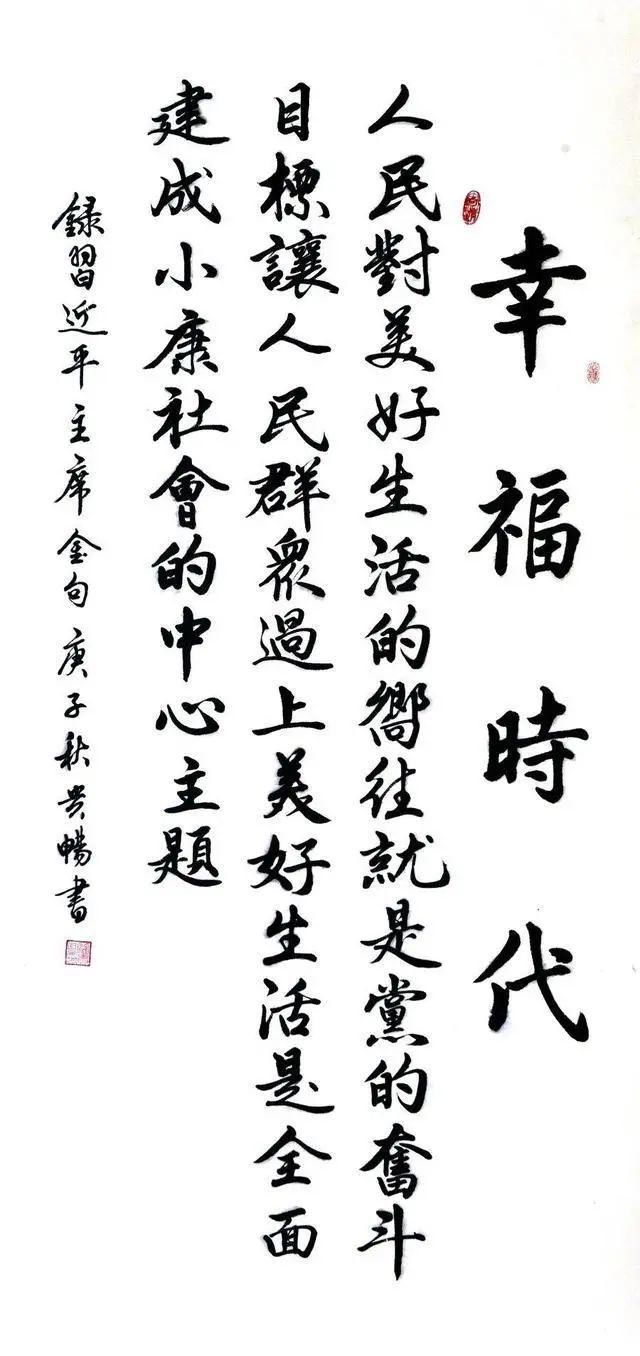 幸福時代
人民對美好生活的嚮往就是黨的奮斗
目標讓人民群眾過上美好生活是全面
建成小康社會的中心主題
録習近平主席金句庚子秋貴暢書